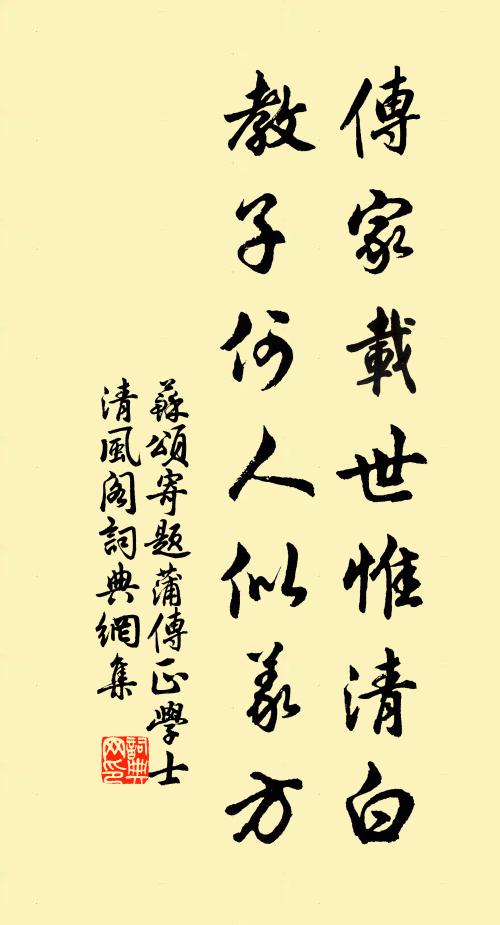 傳家載世惟清白
教子何人似義方
蘇頌寄題蒲傳正學士
清風閣詞典網集
詞典網印